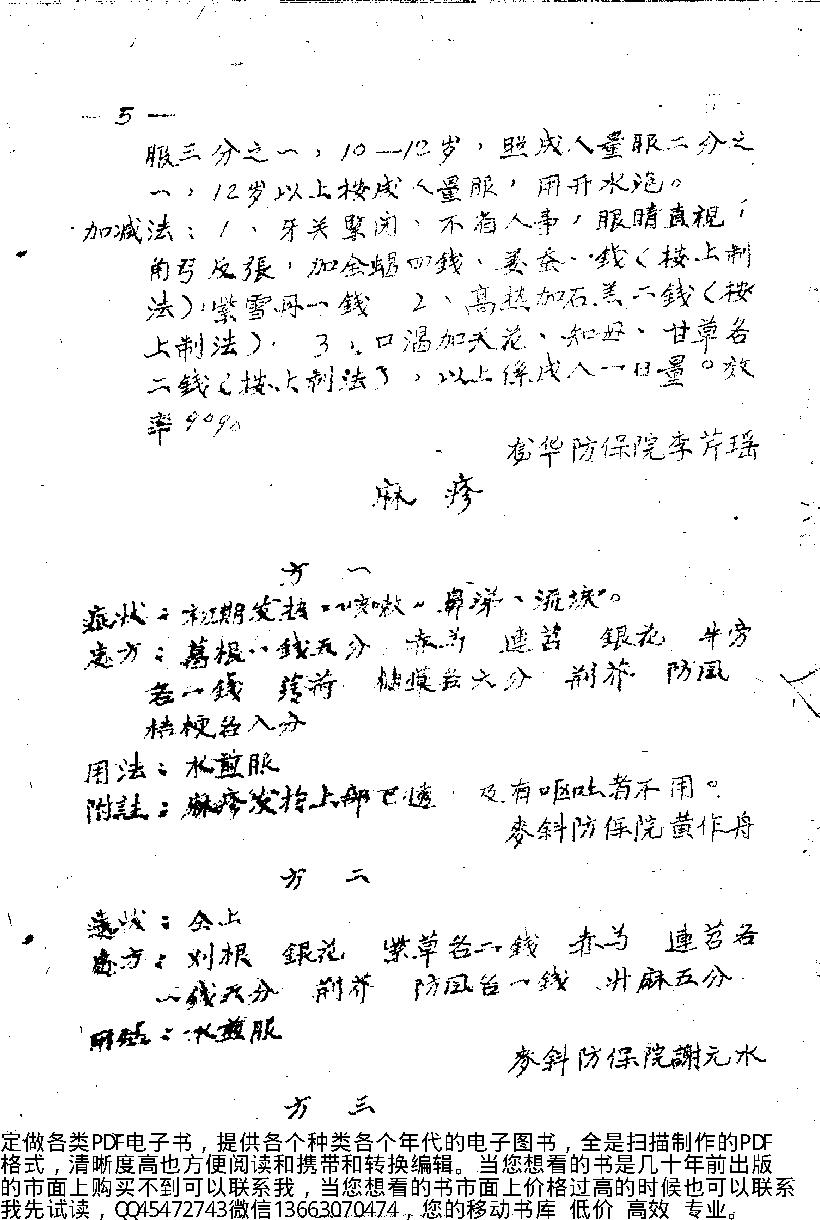 — 5 —
服三分之一，10—12岁，照成人量服二分之
一，12岁以上按成人量服，用开水泡。
加减法：1、牙关緊闭、不省人事，眼睛直視，
角弓反張，加全蝎四錢、姜蚕一錢（按上制
法），紫雪丹一錢 2、高热加石羔二錢（按
上制法）. 3、口渴加天花、知母、甘草各
二錢（按上制法），以上係成人一日量。效
率90%
华防保院李芹瑶
麻 疹
方 一
症状：初期发热、咳嗽、鼻涕、流淚。
处方：葛根一錢五分 赤芍 連苕 銀花 牛旁
各一錢 荷 六分 荆芥 防風
桔梗各八分
用法：水煎服
附註：麻疹发於上部已透 及有呕吐者不用。
麥斜防保院黄作舟
方 二
症状：仝上
处方：刈根 銀花 紫草各二錢 赤芍 連苕各
一錢五分 荆芥 防风各一錢 升麻五分
用法：水煎服
麥斜防保院謝元水
方 三
定做各类PDF电子书，提供各个种类各个年代的电子图书，全是扫描制作的PDF
格式，清晰度高也方便阅读和携带和转换编辑。当您想看的书是几十年前出版
的市面上购买不到可以联系我，当您想看的书市面上价格过高的时候也可以联系
我先试读，QQ45472743微信13663070474，您的移动书库 低价 高效 专业。